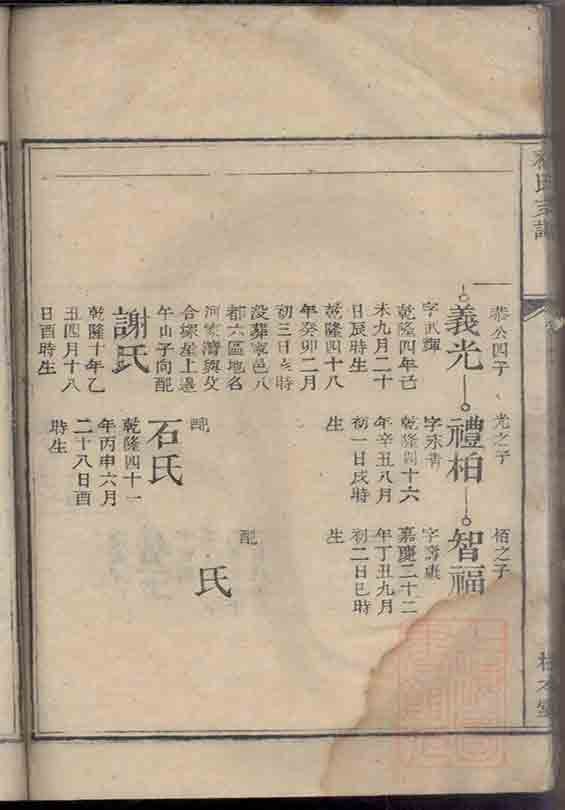 氏宗譜
恭公四子
義光
字武輝
乾隆四年己
未九月二十
日辰時生
乾隆四十八
年癸卯二月
初三日亥時
沒葬家邑八
都六區地名
河家灣與父
合塚崖上邊
午山子向配
謝氏
乾隆十年乙
丑四月十八
日酉時生
光之子
禮柏
字永青
乾隆四十六
年辛丑八月
初一日戌時
生
配
石氏
乾隆四十一
年丙申六月
二十八日酉
時生
栢之子
智福
字壽康
嘉慶二十二
年丁丑九月
初二日巳時
生
配
氏